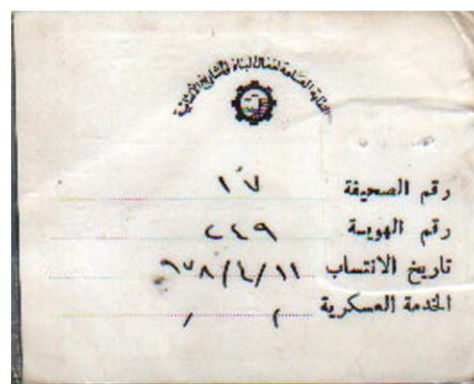 النقابة العامة لعمال البناء والمشاريع الإنمائية
رقم الصحيفة ١٧
رقم الهوية ٢٤٩
تاريخ الانتساب ٩٧٨/٤/١١
الخدمة العسكرية / /